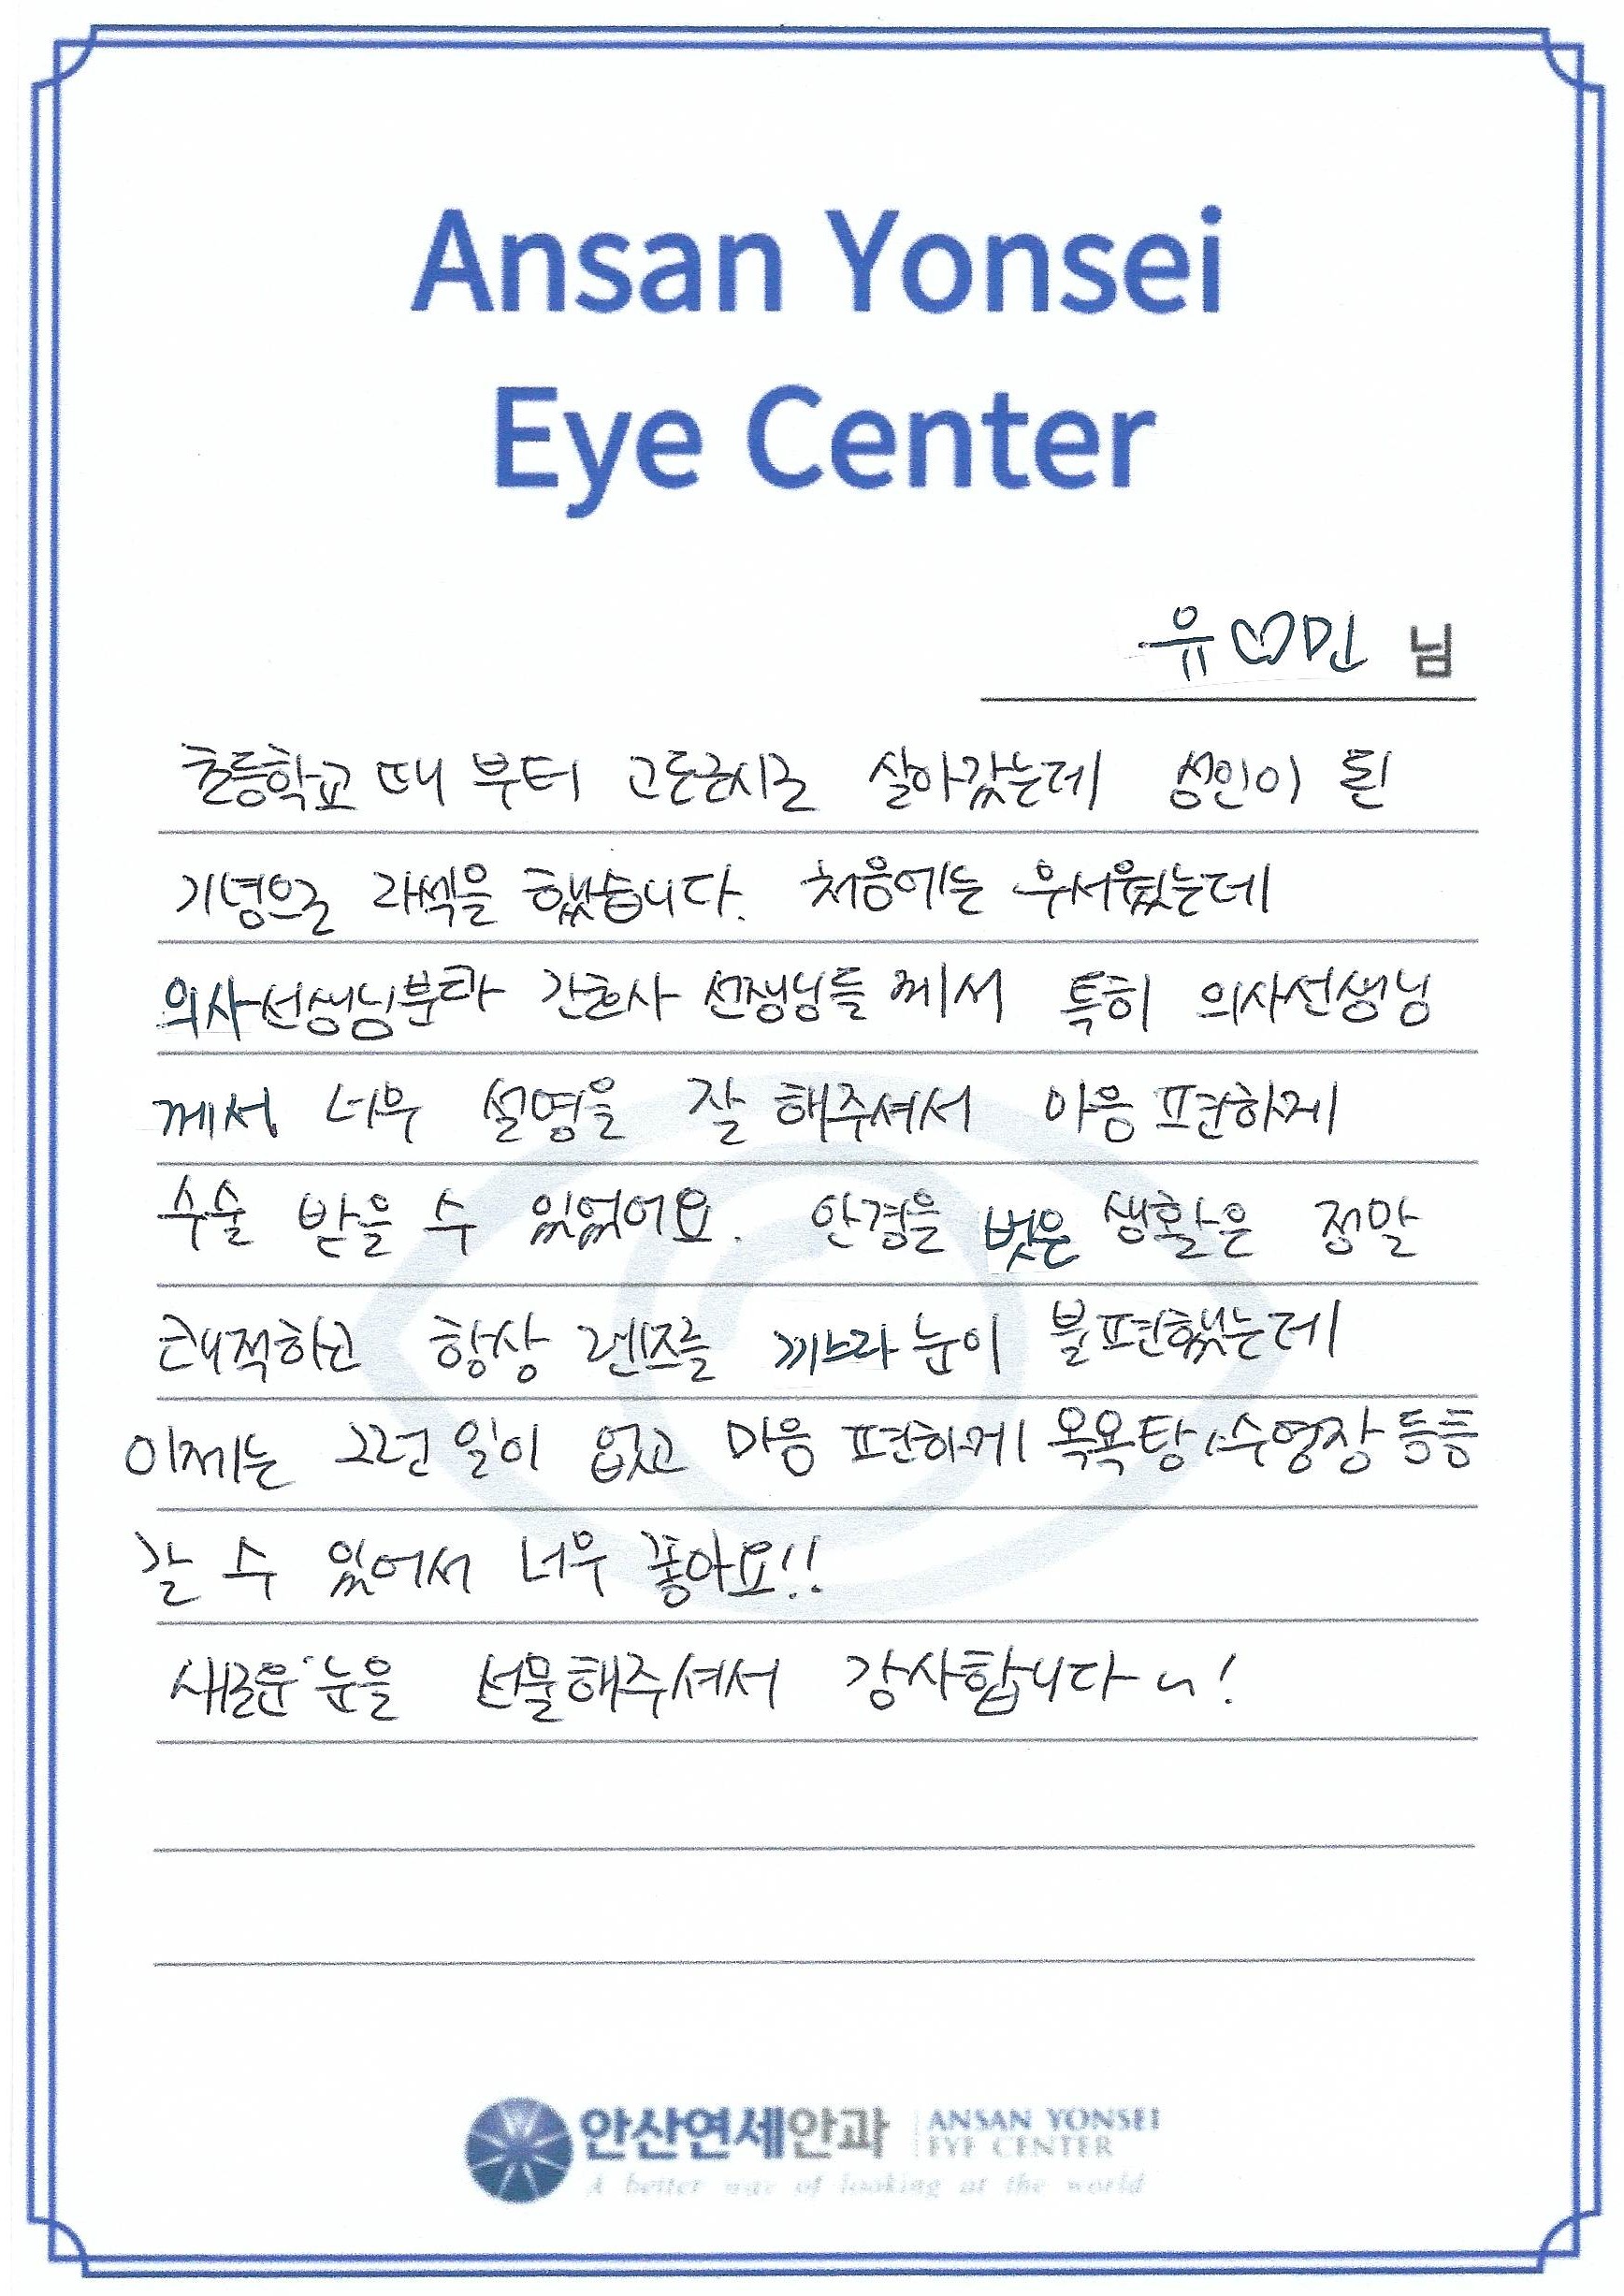 Ansan Yonsei
Eye Center
유♡민 님
초등학교 때 부터 고도근시로 살아갔는데 성인이 된
기념으로 라섹을 했습니다. 처음에는 무서웠는데
의사선생님분과 간호사 선생님들 께서 특히 의사선생님
께서 너무 설명을 잘 해주셔서 마음 편하게
수술 받을 수 있었어요. 안경을 벗은 생활은 정말
쾌적하고 항상 렌즈를 끼느라 눈이 불편했는데
이제는 그런 일이 없고 마음 편하게 목욕탕, 수영장 등등
갈 수 있어서 너무 좋아요!!
새로운 눈을 선물해주셔서 감사합니다~!
안산연세안과 ANSAN YONSEI
EYE CENTER
A better way of looking at the world